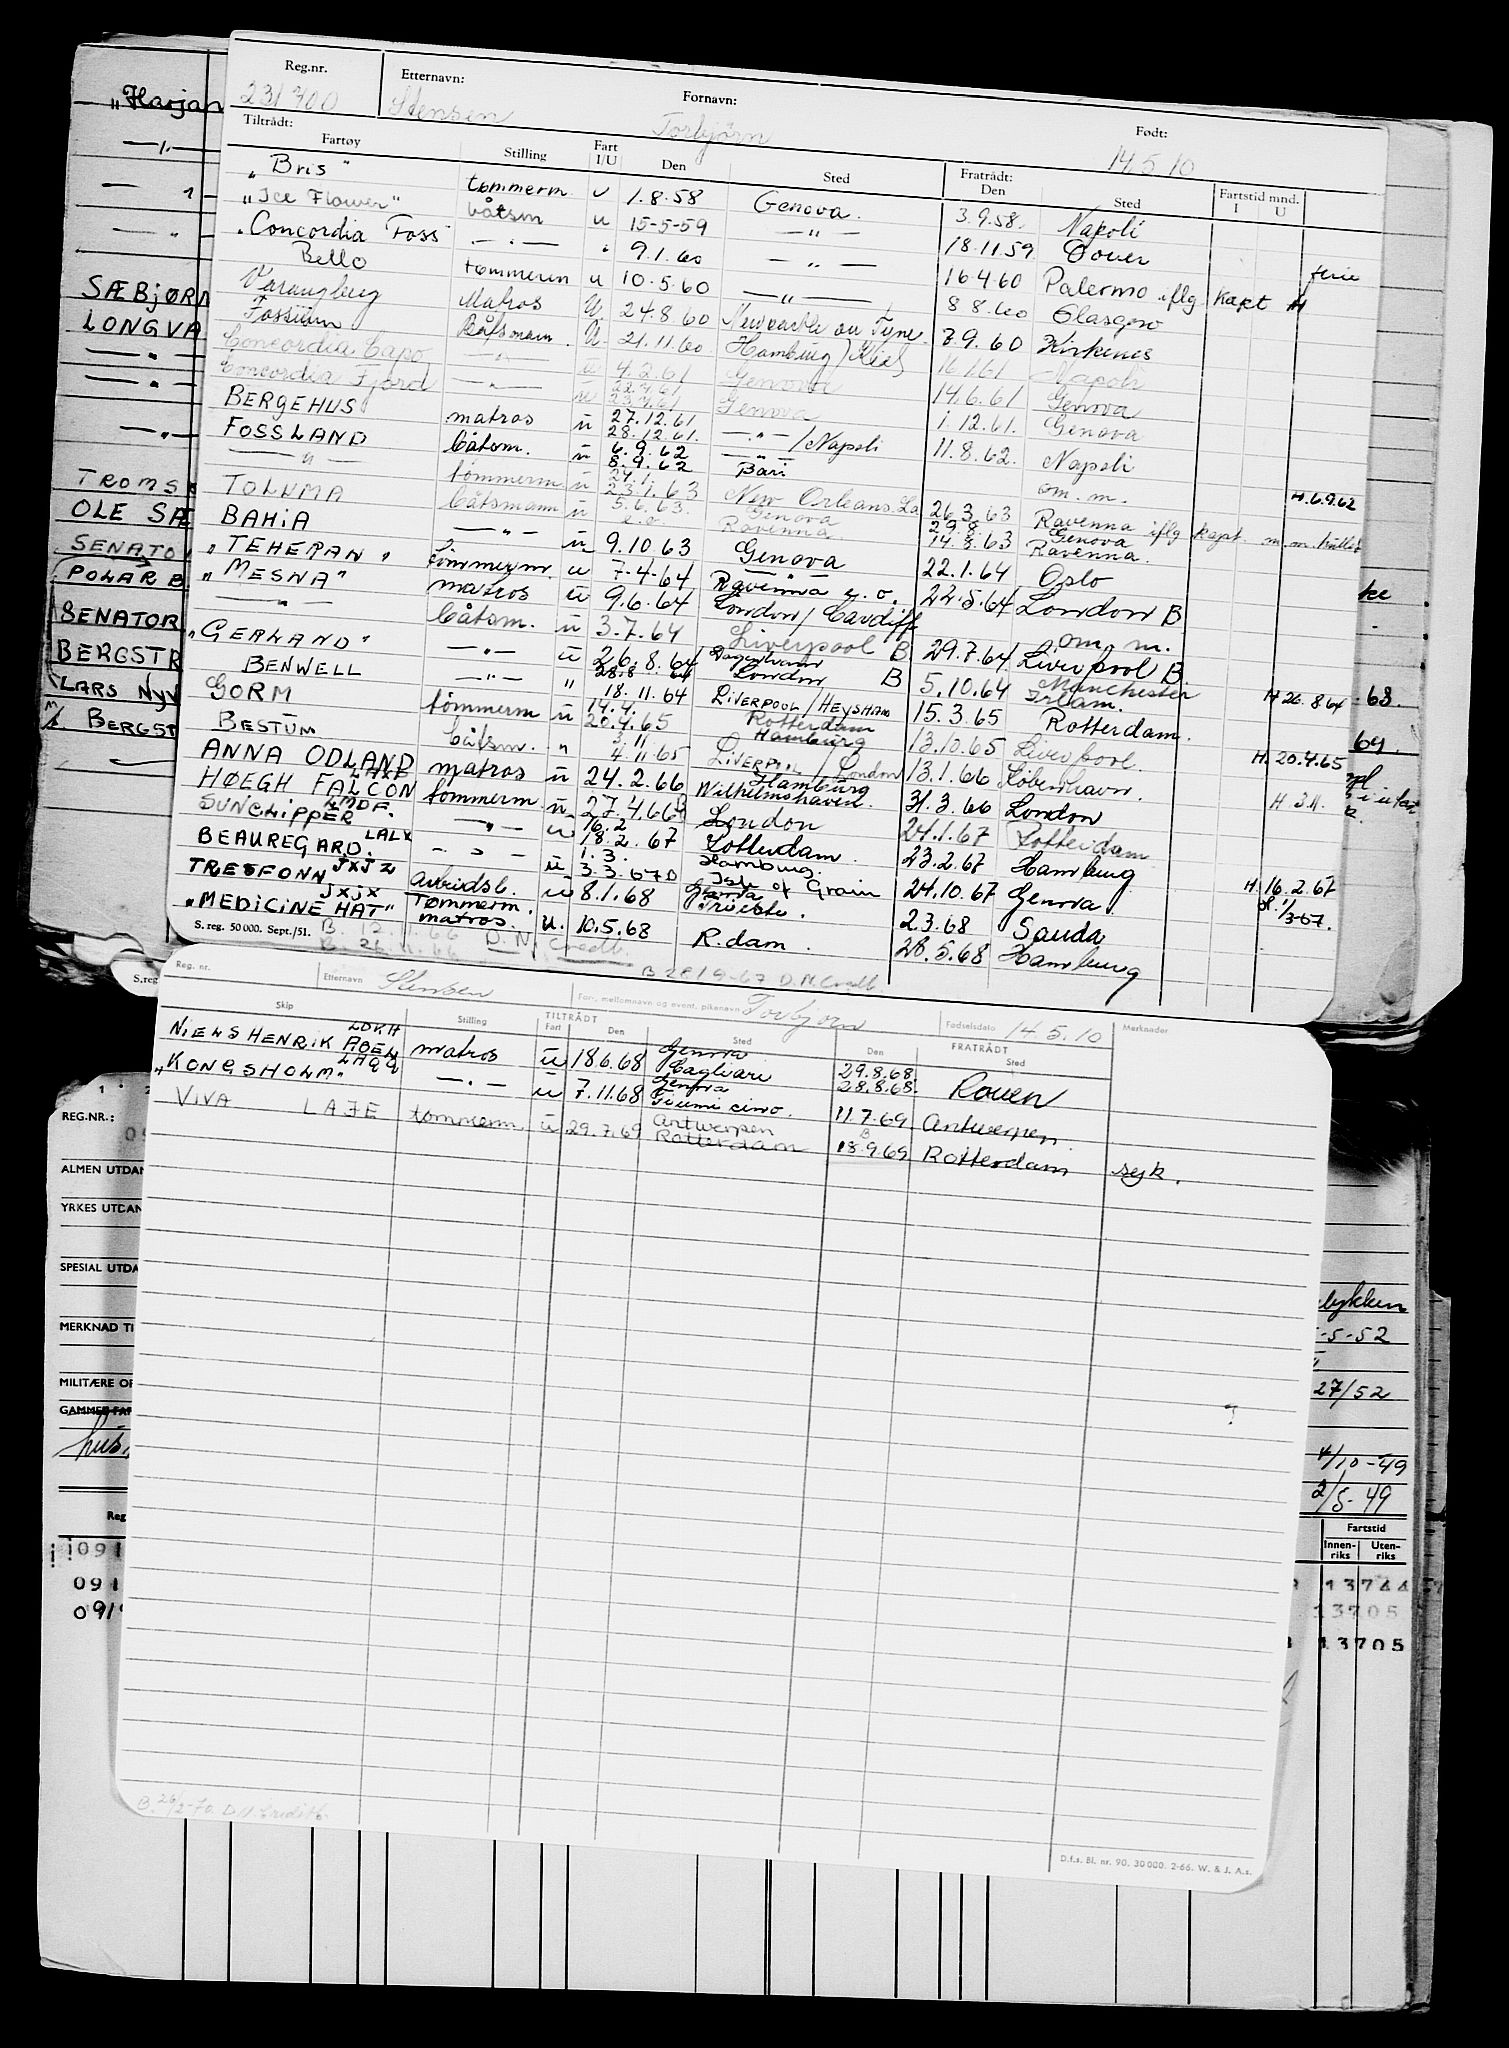 Reg.nr. Etternavn: Fornavn: Født:
231700 Stensen Torbjørn 14.5.10
Tiltrådt: Fratrådt:
Fartøy Stilling Fart I/U Den Sted Den Sted Fartstid mnd. I U
„Bris" tømmerm. u 1.8.58 Genova. 3.9.58. Napoli
„Ice Flower" båtsm u 15-5-59 —"— 18.11.59 Dover
"Concordia Foss —"— " 9.1.60 —"— 16.4.60 Palermo iflg Kapt ferie
Bello tømmerm u 10.5.60 —"— 8.8.60 Glasgow
Varangberg Matros U. 24.8.60 Newcastle on Tyne 3.9.60 Kirkenes
Fossum Båtsmann U. 21.11.60 Hamburg/Kiel 16.1.61 Napoli
Concordia Capo —"— u 4.2.61 Genova 14.6.61 Genova
Concordia Fjord —"— u 22.7.61 23.7.61 Genova 1.12.61. Genova
BERGEHUS matros u 27.12.61 28.12.61. —"—/Napoli 11.8.62. Napoli
FOSSLAND båtsm. u 6.9.62 8.9.62 —"— Bari om. m. H.6.9.62
—"— tømmerm. u 24.1. 23.1.63 New Orleans La 26.3.63 Ravenna iflg kapt. m.m. rullen
TOLUMA båtsmann u 5.6.63. Genova Ravenna 29.8. 14.8.63 Genova Ravenna.
BAHIA —"— u. 9.10.63 Genova 22.1.64 Oslo
„TEHERAN" tømmerm. u 7-4-64 —"— Ravenna e.o. 22.5.64 London B
„MESNA" matros u 9.6.64 London/Cardiff om. m.
—"— båtsm. u 3.7.64 Liverpool B 29.7.64 Liverpool B
„GERLAND" —"— u 26.8.64 28.8.64 Dagenham London B 5.10.64 Manchester Irlam. H 26.8.64
BENWELL —"— " 18.11.64 LIVERPOOL/HEYSHAM 15.3.65 Rotterdam.
GORM tømmerm u 14.4. 20.4.65 Rotterdam Hamburg 13.10.65 Liverpool. H. 20.4.65
BESTUM båtsm. " 3.11 4.11.65 LIVERPOOL/London 13.1.66 København. H. 3.11.
ANNA ODLAND matros u 24.2.66 Hamburg Wilhelmshaven. 31.3.66 London
HØEGH FALCON tømmerm. u 27.4.66 B London 24.1.67 Rotterdam
SUNCLIPPER LMDF. —"— u 16.2 18.2.67 Rotterdam. 23.2.67 Hamburg H 16.2.67
BEAUREGARD. LALX —"— u 1.3. 3.3.67 Hamburg. Isle of Grain 24.10.67 Genova
TRESFONN JXJZ arbeidsl. Tømmerm. u 8.1.68 Genova Trieste. 2.3.68 Sauda
„MEDICINE HAT" JXJX matros. u. 10.5.68 R.dam. 28.5.68 Hamburg
S. reg. 50 000. Sept./51.
B. 26.11.66 D.N. Creditb.
B 28/9-67 D.N.Credb.
Reg. nr. Etternavn Stensen For-, mellomnavn og event. pikenavn Torbjørn Fødselsdato 14.5.10 Merknader
TILTRÅDT FRATRÅDT
Skip Stilling Fart Den Sted Den Sted
NIELS HENRIK ABEL LDKH matros u 18.6.68 Genova Cagliari 29.8.68. 28.8.68. Rouen
„KONGSHOLM" —"— u 7.11.68 Genova Fiumicino. 11.7.69 Antwerpen
VIVA LAJE tømmerm. u 29.7.69 Antwerpen Rotterdam 18.9.69 Rotterdam syk.
B. 26/2-70. D.N.Creditb.
D.f.s. Bl. nr. 90. 30 000. 2-66. W. & J. A.s.
„Harjan
SÆBJØRN
LONGVA
TROMS
OLE SÆ
SENATO
POLAR B
BENATOR
BERGSTR
LARS NYV
M/S BERGST
S.reg
REG.NR.:
ALMEN UTDAN
YRKES UTDAN
SPESIAL UTDA
MERKNAD TI
MILITÆRE OP
GAMMEL FAR
hus.
Reg
091
091
091
lykken
-5-52
27/52
4/10-49
2/5-49
Fartstid
Innenriks Utenriks
13744
13705
13705